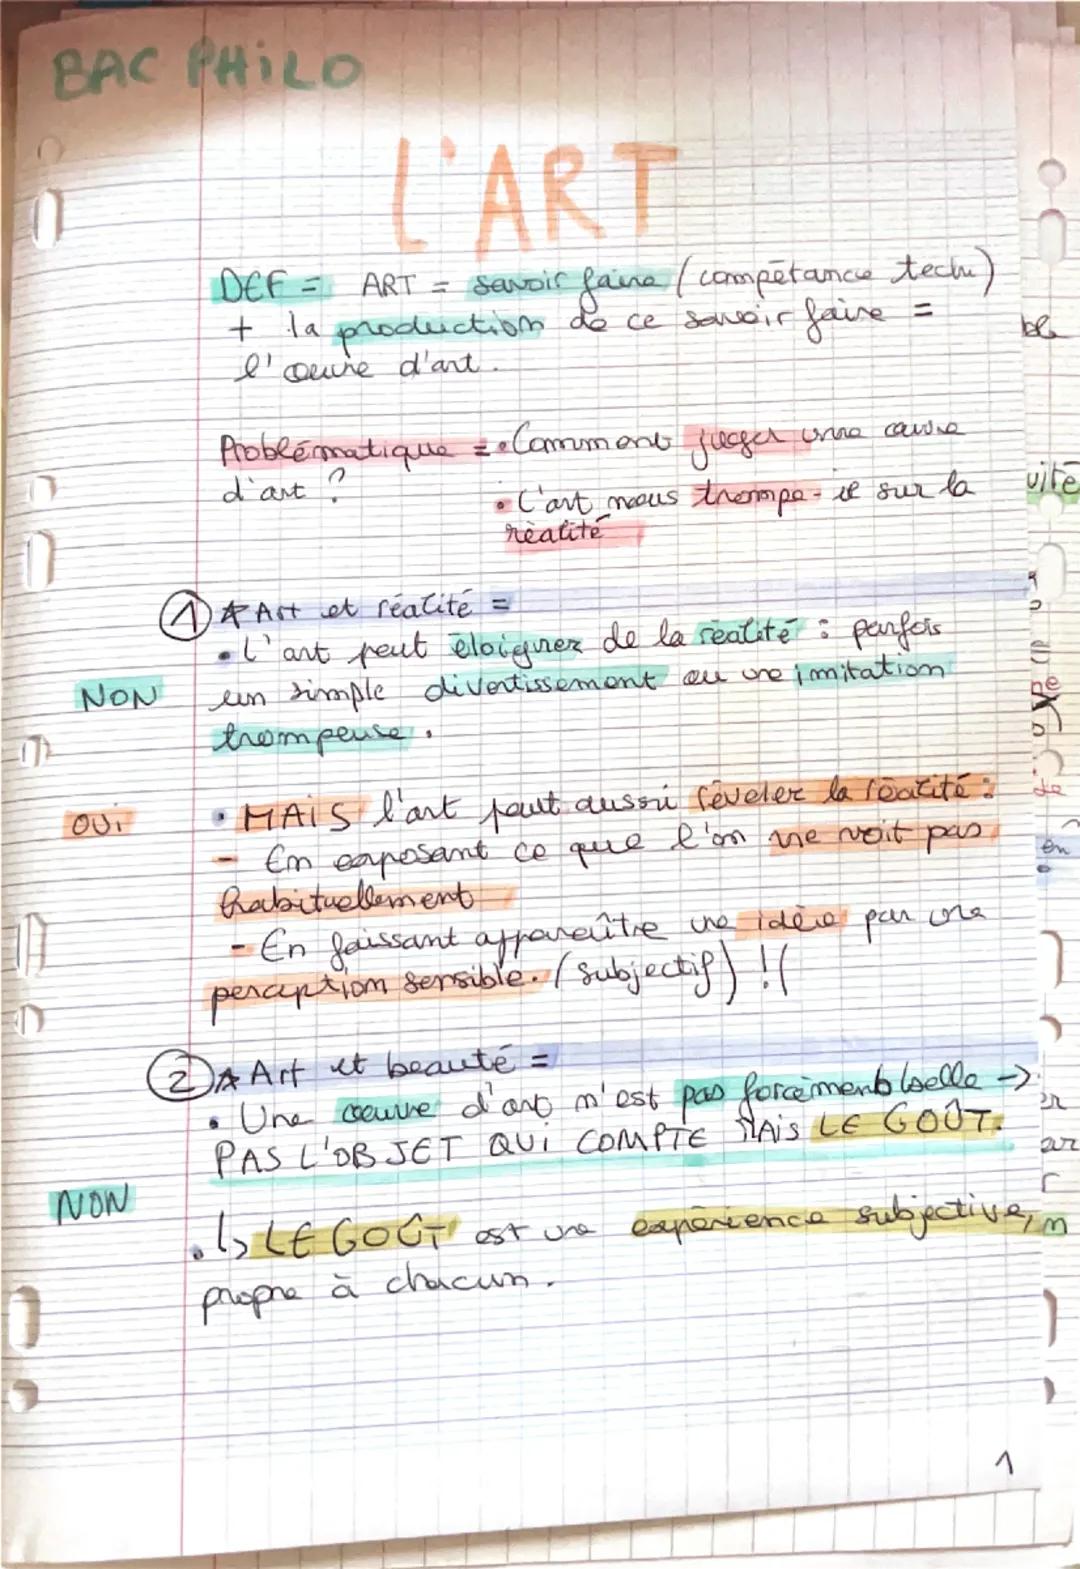 BAC PHILO
L'ART
DEF = ART = savoir faire (compétance tech)
+ la production de ce savoir faire =
l'œuvre d'art.
Problématique = • Comment juger une œuvre
d'art ?
• L'art nous trompe-il sur la
réalité
① * Art et réalité =
• L'art peut éloigner de la réalité : parfois
NON un simple divertissement ou une imitation
trompeuse.
OUi • MAiS l'art peut aussi réveler la réalité :
- En exposant ce que l'on ne voit pas
habituellement
- En faissant apparaître une idée par une
perception sensible. (subjectif) !(
② * Art et beauté =
• Une œuvre d'art n'est pas forcément belle →
PAS L'OBJET QUi COMPTE MAiS LE GOÛT.
NON
• ↳ LE GOÛT est une expérience subjective,
propre à chacun.
1